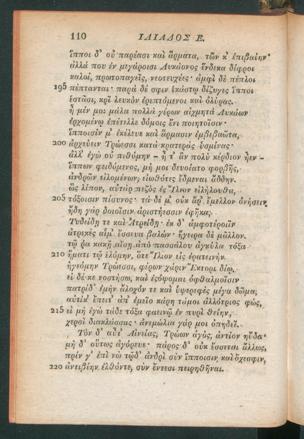 110 ΙΛΙΑΔΟΣ Ε.
ἵπποι δ᾽ οὐ παρέασι καὶ ἅρματα, τῶν κ᾽ ἐπιβαίην·
ἀλλά που ἐν μεγάροισι Λυκάονος ἕνδεκα δίφροι
καλοί, πρωτοπαγεῖς, νεοτευχέες· ἀμφὶ δὲ πέπλοι
195 πέπτανται· παρὰ δέ σφιν ἑκάστῳ δίζυγες ἵπποι
ἑστᾶσι, κρῖ λευκὸν ἐρεπτόμενοι καὶ ὀλύρας.
ἦ μέν μοι μάλα πολλὰ γέρων αἰχμητὰ Λυκάων
ἐρχομένῳ ἐπέτελλε δόμοις ἔνι ποιητοῖσιν·
ἵπποισίν μ᾽ ἐκέλευε καὶ ἅρμασιν ἐμβεβαῶτα,
200 ἀρχεύειν Τρώεσσι κατὰ κρατερὰς ὑσμίνας·
ἀλλ᾽ ἐγὼ οὐ πιθόμην – ἦ τ᾽ ἂν πολὺ κέρδιον ἦεν –
ἵππων φειδόμενος, μή μοι δευοίατο φορβῆς,
ἀνδρῶν εἰλομένων, εἰωθότες ἔδμεναι ἄδδην.
ὣς λίπον, αὐτὰρ πεζὸς ἐς Ἴλιον εἰλήλουθα,
205 τόξοισιν πίσυνος· τὰ δέ μ᾽ οὐκ ἄρ᾽ ἔμελλον ὀνήσειν.
ἤδη γὰρ δοιοῖσιν ἀριστήεσσιν ἐφῆκα,
Τυδείδῃ τε καὶ Ἀτρείδῃ· ἐκ δ᾽ ἀμφοτέροιϊν
ἀτρεκὲς αἷμ᾽ ἔσσευα βαλών· ἤγειρα δὲ μᾶλλον.
τῷ ῥα κακῇ αἴσῃ ἀπὸ πασσάλου ἀγκύλα τόξα
210 ἤματι τῷ ἑλόμην, ὅτε Ἴλιον εἰς ἐρατεινὴν
ἡγεόμην Τρώεσσι, φέρων χάριν Ἕκτορι δίῳ.
εἰ δέ κε νοστήσω, καὶ ἐσόψομαι ὀφθαλμοῖσιν
πατρίδ᾽ ἐμὴν ἄλοχόν τε καὶ ὑψερεφὲς μέγα δῶμα,
αὐτίκ᾽ ἔπειτ᾽ ἀπ᾽ ἐμεῖο κάρη τάμοι ἀλλότριος φώς,
215 εἰ μὴ ἐγὼ τάδε τόξα φαεινῷ ἐν πυρὶ θείην,
χερσὶ διακλάσσας· ἀνεμώλια γάρ μοι ὀπηδεῖ.
Τὸν δ᾽ αὖτ᾽ Αἰνείας, Τρώων ἀγός, ἀντίον ηὔδα·
μὴ δ᾽ οὕτως ἀγόρευε· πάρος δ᾽ οὐκ ἔσσεται ἄλλως,
πρίν γ᾽ ἐπὶ νὼ τῷδ᾽ ἀνδρὶ σὺν ἵπποισιν καὶ ὄχεσφιν,
220 ἀντιβίην ἐλθόντε, σὺν ἔντεσι πειρηθῆναι.